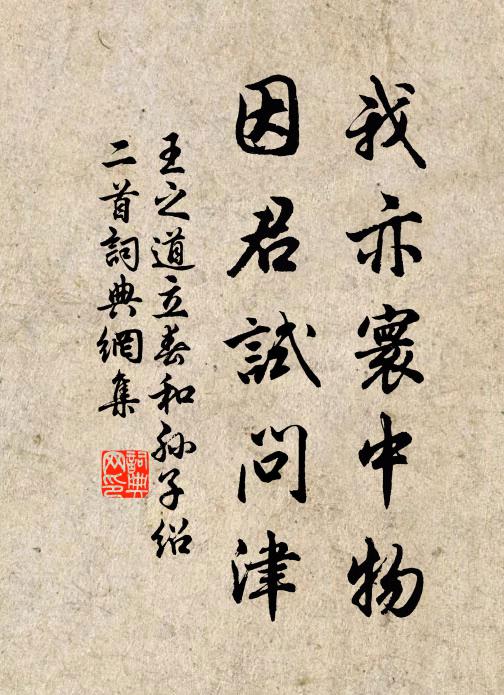 我亦寰中物
因君試問津
王之道立春和孫子紹
二首詞典網集
詞典網印